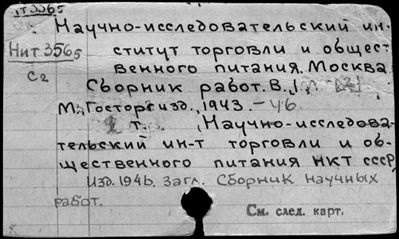 ІТ3565
Научно-исследовательский ин-
Нит 3565
ститут торговли и общест
С2
венного питания. Москва
Сборник работ. В. 1.
М., Госторгиздат, 1943. - 46.
т. , Научно-исследова-
тельский ин-т торговли и об-
щественного питания НКТ СССР,
Изд. 1946. Загл. Сборник научных
работ.
См. след. карт.